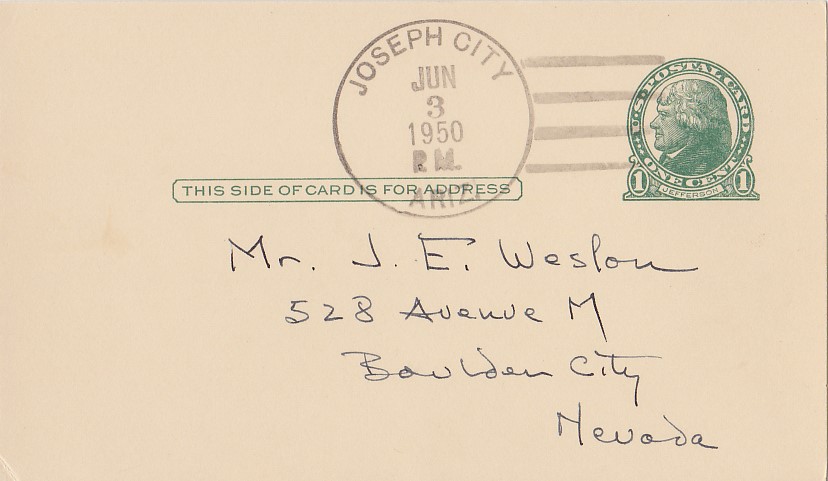 JOSEPH CITY
JUN
3
1950
P.M.
ARIZ.
U.S. POSTAL CARD
ONE CENT
1 JEFFERSON 1
THIS SIDE OF CARD IS FOR ADDRESS
Mr. J. E. Weslon
528 Avenue M
Boulder City
Nevada